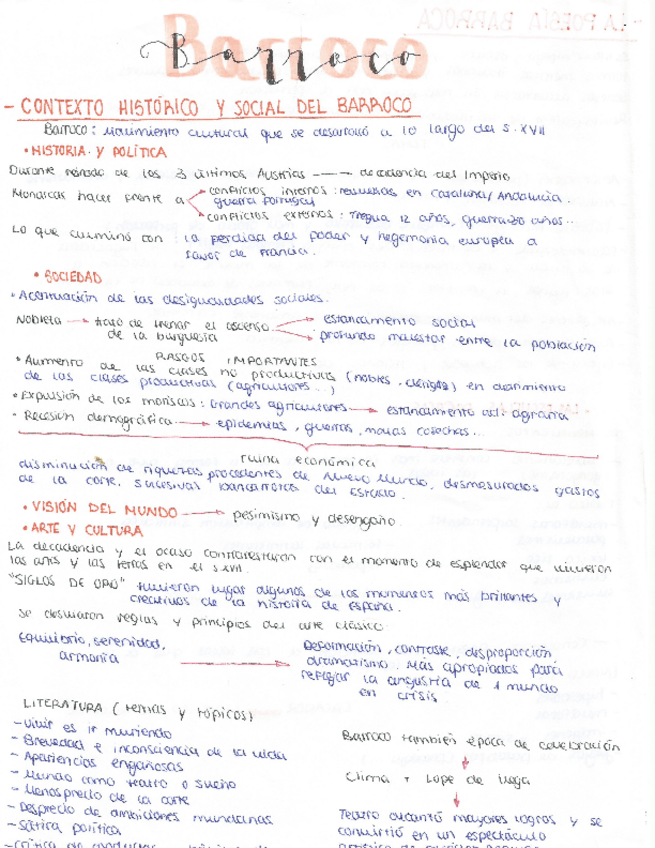 Barroco
- CONTEXTO HISTÓRICO Y SOCIAL DEL BARROCO
Barroco: Movimiento cultural que se desarrolló a lo largo del S.XVII
• HISTORIA Y POLÍTICA
Durante reinado de los 3 últimos Austrias → decadencia del Imperio
Monarcas hacer frente a
conflictos internos: revueltas en Cataluña/Andalucía.
guerra Portugal
conflictos externos: Tregua 12 años, guerra 30 años...
Lo que culminó con la pérdida del poder y hegemonía europea a
favor de Francia.
• SOCIEDAD
• Acentuación de las desigualdades sociales.
Nobleza → trató de frenar el ascenso
de la burguesía
estancamento social
profundo malestar entre la población
RASGOS IMPORTANTES
• Aumento de las clases no productivas (nobles, clérigos) en detrimento
de las clases productivas (agricultores...)
• Expulsión de los moriscos: Grandes agricultores → estancamento act. agraria
• Recesión demográfica → epidemias, guerras, malas cosechas...
ruina económica
disminución de riquezas procedentes de Nuevo Mundo, desmesurados gastos
de la corte, sucesivas bancarrotas del Estado.
• VISIÓN DEL MUNDO → pesimismo y desengaño.
• ARTE Y CULTURA
La decadencia y el ocaso contrastaron con el momento de esplendor que vivieron
las arts y las letras en el S.XVII.
"SIGLOS DE ORO" tuvieron lugar algunos de los momentos más brillantes y
creativos de la historia de España.
Se reglas y principios del arte clásico:
Equilibrio, serenidad,
armonía
→
Deformación, contraste, desproporción
dramatismo. Más apropiados para
reflejar la angustia de 1 mundo
en crisis.
LITERATURA (temas y tópicos)
- Vivir es ir muriendo
- Brevedad e inconsciencia de la vida
- Apariencias engañosas
- Mundo como teatro o sueño
- Menosprecio de la corte
- Desprecio de ambiciones mundanas
- Sátira política
Barroco también época de celebración
Clima + Lope de Vega
Teatro alcanzó mayores logros y se
convirtió en un espectáculo